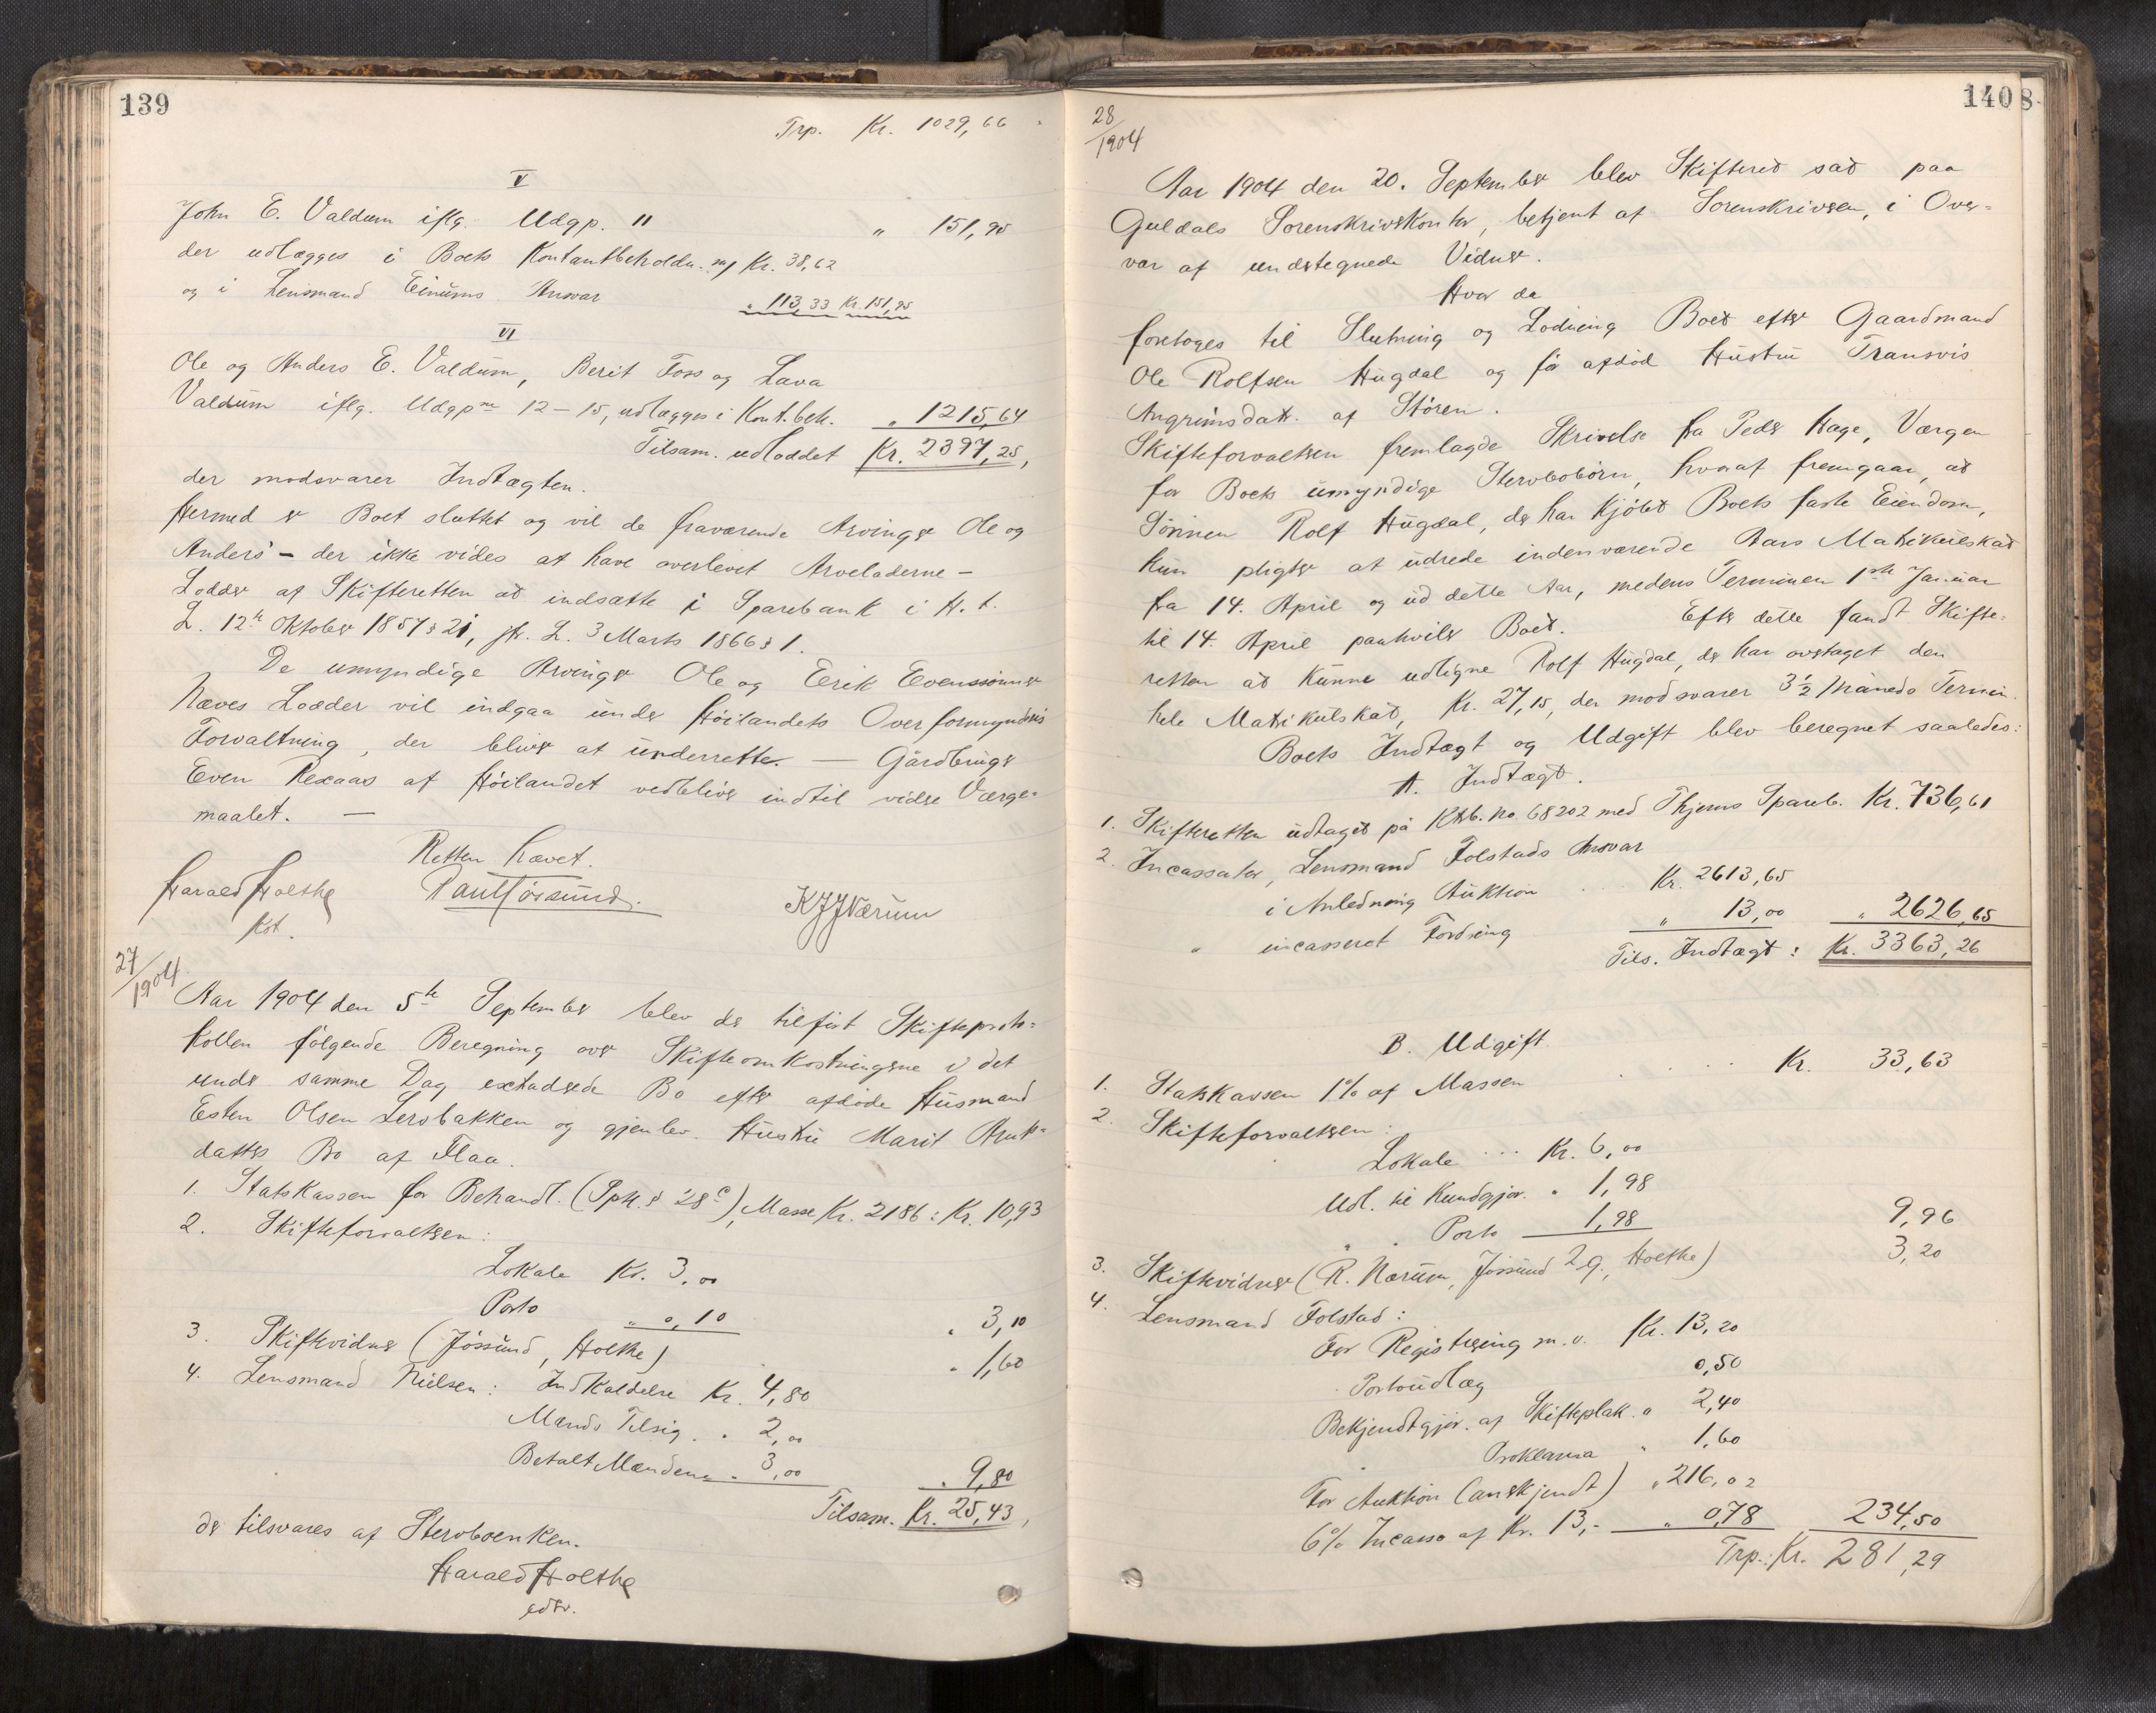 139
Trp. Kr. 1029,66
V
John E. Valdum iflg. Udgp. 11 " 151,95
der udlægges i Boets Kontantbeholdn. m/ Kr. 38,62
og i Lensmand Einums Ansvar " 113,33 Kr. 151,95
VI
Ole og Anders E. Valdum, Berit Foss og Lava
Valdum iflg. Udgpne 12-15, udlægges i Kont.beh. " 1215,64
Tilsam. udloddet Kr. 2397,25,
der modsvarer Indtægten.
Hermed er Boet sluttet og vil de fraværende Arvinger Ole og
Anders - der ikke vides at have overlevet Arveladerne -
Lodder af Skifteretten at indsætte i Sparebank i H. t.
L. 12te Oktober 1857 § 21, jfr. L. 3 Marts 1866 § 1.
De umyndige Arvinger Ole og Erik Evenssønner
Næves Lodder vil indgaa under Høilandets Overformynderis
Forvaltning, der bliver at underrette. - Gårdbruger
Even Rexaas af Høilandet vedbliver indtil videre Værge-
maalet. -
Retten hævet.
Harald Holthe Paul Jøssund. K J J Værum
Kst.
27/1904
Aar 1904 den 5te September blev der tilført Skifteproto-
kollen følgende Beregning over Skifteomkostningerne i det
under samme Dag extraderede Bo efter afdøde Husmand
Esten Olsen Lersbakken og gjenlev. Hustru Marit Arnts-
datters Bo af Flaa.
1. Statskassen for Behandl. (Sptl. § 28c), Masse Kr. 2186: Kr. 10,93
2. Skifteforvalteren:
Lokale Kr. 3,00
Porto " 0,10 " 3,10
3. Skiftevidner (Jøssund, Holthe) " 1,60
4. Lensmand Nielsen: Indkaldelse Kr. 4,80
Mænds Tilsig. " 2,00
Betalt Mændene " 3,00 " 9,80
Tilsam. Kr. 25,43,
der tilsvares af Stervboenken.
Harald Holthe
edsv.
1408
28/1904
Aar 1904 den 20. September blev Skifteret sat paa
Guldals Sorenskriverkontor, betjent af Sorenskriveren, i Over-
vær af undertegnede Vidner.
Hvor da
foretoges til Slutning og Lodning Boet efter Gaardmand
Ole Rolfsen Hugdal og før afdød Hustru Tranvis
Angrimsdatt. af Støren.
Skifteforvalteren fremlagde Skrivelse fra Peder Hage, Værgen
for Boets umyndige Stervbobørn, hvoraf fremgaar, at
Sønnen Rolf Hugdal, der har kjøbt Boets faste Eiendom,
kun pligter at udrede indenværende Aars Matrikulskat
fra 14. April og ud dette Aar, medens Terminen 1ste Januar
til 14. April paahviler Boet. Efter dette fandt Skifte-
retten at kunne udligne Rolf Hugdal, der har overtaget den
hele Matrikulskat, Kr. 27,15, der modsvarer 3 1/2 Måneds Termin.
Boets Indtægt og Udgift blev beregnet saaledes:
A. Indtægt.
1. Skifteretten udtaget på Ktrb. No. 68202 med Thjems Spareb. Kr. 736,61
2. Incassator, Lensmand Folstads Ansvar
i Anledning Auktion Kr. 2613,65
" incasseret Fordring " 13,00 " 2626,65
Tils. Indtægt: Kr. 3363,26
B. Udgift.
1. Statskassen 1% af Massen Kr. 33,63
2. Skifteforvalteren:
Lokale Kr. 6,00
Udl. til Kundgjør. " 1,98
" " Porto 1,98 9,96
3. Skiftevidner (R. Nærum, Jøssund 2 g., Holthe) 3,20
4. Lensmand Folstad:
For Registrering m. v. Kr. 13,20
Portoudlæg 0,50
Bekjendtgjør. af Skifteplak. " 2,40
" Proklama " 1,60
For Auktion (anerkjendt) " 216,02
6% Incasso af Kr. 13,- " 0,78 234,50
Trp.: Kr. 281,29